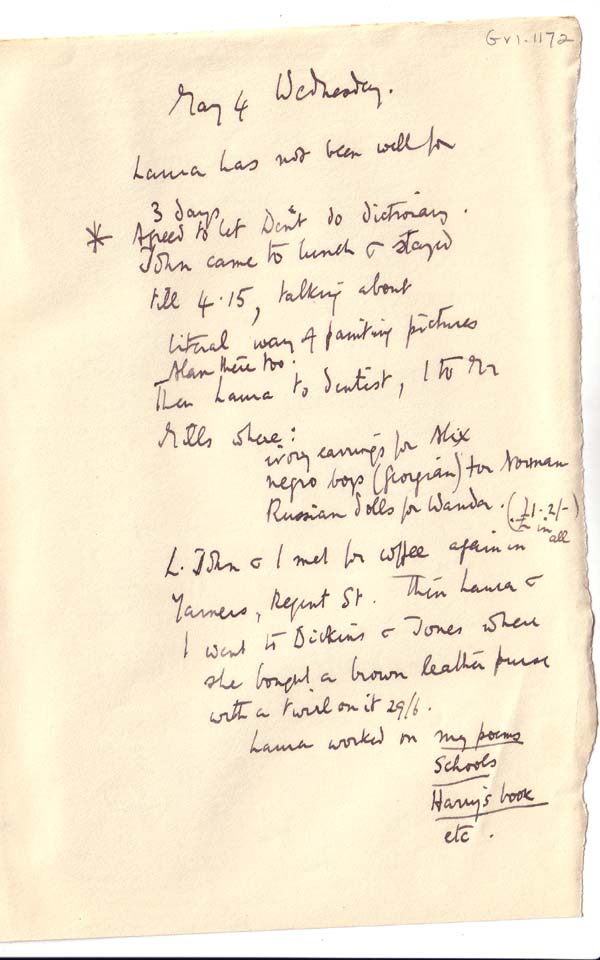 Gv1.1172
May 4 Wednesday.
Laura has not been well for
3 days
* Agreed to let Dent do dictionary.
John came to lunch & stayed
till 4.15, talking about
literal way of painting pictures
Alan there too.
Then Laura to dentist, I to Mr
Mills where:
ivory earrings for Alix
negro boys (Georgian) for Norman
Russian dolls for Wanda. (£1.2/-
in all)
L. John & I met for coffee again in
Yarners, Regent St. Then Laura &
I went to Dickins & Jones where
she bought a brown leather purse
with a twirl on it 29/6.
Laura worked on my poems
Schools
Harry's book
etc.